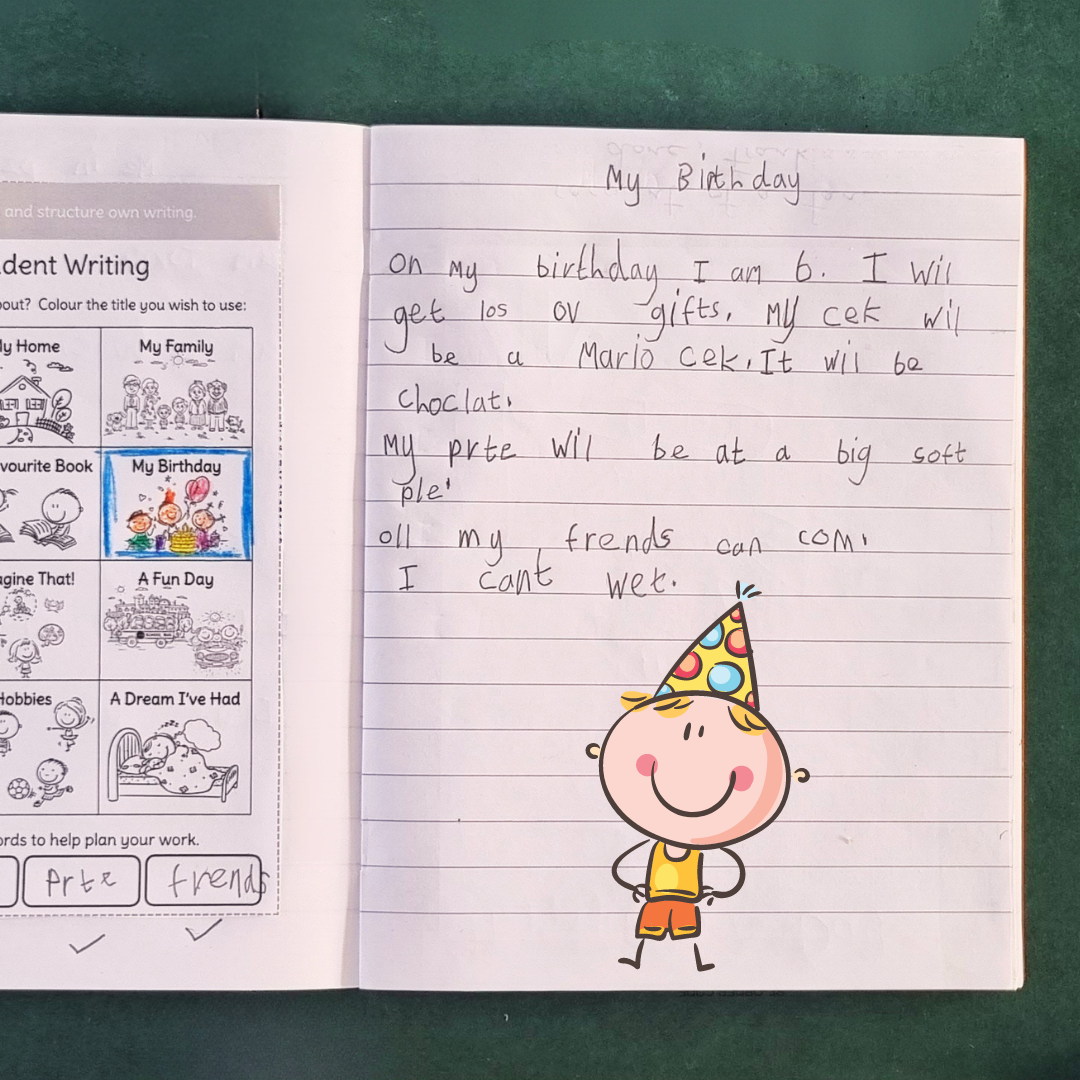 and structure own writing.
dent Writing
out? Colour the title you wish to use:
y Home
My Family
vourite Book
My Birthday
gine That!
A Fun Day
Hobbies
A Dream I've Had
ords to help plan your work.
prte
frends
My Birthday
On my birthday I am 6. I wil
get los ov gifts. My cek wil
be a Mario cek. It wil be
choclat.
My prte wil be at a big soft
ple.
oll my frends can com.
I cant wet.